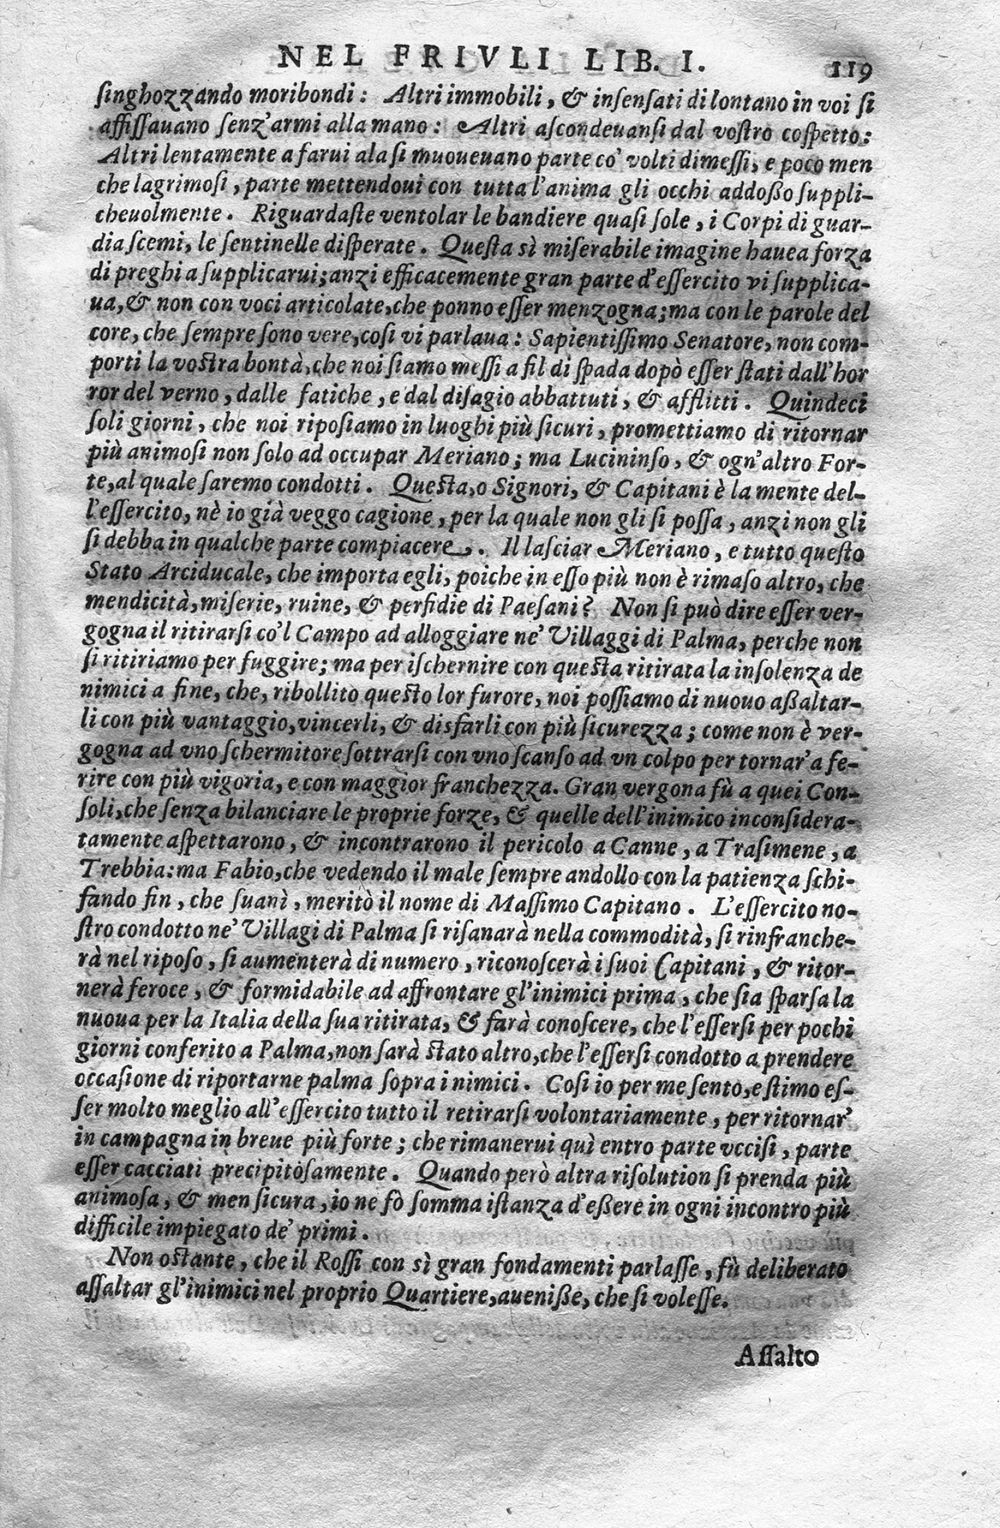 NEL FRIVLI LIB. I. 119
ſinghozzando moribondi: Altri immobili, & inſenſati di lontano in voi ſi
affiſſauano ſenz'armi alla mano: Altri aſcondeuanſi dal voſtro coſpetto:
Altri lentamente a farui ala ſi muoueuano parte co' volti dimeſſi, e poco men
che lagrimoſi, parte mettendoui con tutta l'anima gli occhi addoßo ſuppli-
cheuolmente. Riguardaſte ventolar le bandiere quaſi ſole, i Corpi di guar-
dia ſcemi, le ſentinelle diſperate. Queſta sì miſerabile imagine hauea forza
di preghi a ſupplicarui; anzi efficacemente gran parte d'eſſercito vi ſupplica-
ua, & non con voci articolate, che ponno eſſer menzogna; ma con le parole del
core, che ſempre ſono vere, coſi vi parlaua: Sapientiſſimo Senatore, non com-
porti la voſtra bontà, che noi ſiamo meſſi a fil di ſpada dopò eſſer ſtati dall'hor
ror del verno, dalle fatiche, e dal diſagio abbattuti, & afflitti. Quindeci
ſoli giorni, che noi ripoſiamo in luoghi più ſicuri, promettiamo di ritornar
più animoſi non ſolo ad occupar Meriano; ma Lucininſo, & ogn'altro For-
te, al quale ſaremo condotti. Queſta, o Signori, & Capitani è la mente del-
l'eſſercito, nè io già veggo cagione, per la quale non gli ſi poſſa, anzi non gli
ſi debba in qualche parte compiacere. Il laſciar Meriano, e tutto queſto
Stato Arciducale, che importa egli, poiche in eſſo più non è rimaſo altro, che
mendicità, miſerie, ruine, & perfidie di Paeſani? Non ſi può dire eſſer ver-
gogna il ritirarſi co'l Campo ad alloggiare ne' Villaggi di Palma, perche non
ſi ritiriamo per fuggire; ma per iſchernire con queſta ritirata la inſolenza de
nimici a fine, che, ribollito queſto lor furore, noi poſſiamo di nuouo aßaltar-
li con più vantaggio, vincerli, & disfarli con più ſicurezza; come non è ver-
gogna ad vno ſchermitore ſottrarſi con vno ſcanſo ad vn colpo per tornar' a fe-
rire con più vigoria, e con maggior franchezza. Gran vergona fù a quei Con-
ſoli, che ſenza bilanciare le proprie forze, & quelle dell'inimico inconſidera-
tamente aſpettarono, & incontrarono il pericolo a Canne, a Traſimene, a
Trebbia: ma Fabio, che vedendo il male ſempre andollo con la patienza ſchi-
fando fin, che ſuanì, meritò il nome di Maſſimo Capitano. L'eſſercito no-
ſtro condotto ne' Villagi di Palma ſi riſanarà nella commodità, ſi rinfranche-
rà nel ripoſo, ſi aumenterà di numero, riconoſcerà i ſuoi Capitani, & ritor-
nerà feroce, & formidabile ad affrontare gl'inimici prima, che ſia ſparſa la
nuoua per la Italia della ſua ritirata, & farà conoſcere, che l'eſſerſi per pochi
giorni conferito a Palma, non ſarà ſtato altro, che l'eſſerſi condotto a prendere
occaſione di riportarne palma ſopra inimici. Coſi io per me ſento, e ſtimo eſ-
ſer molto meglio all'eſſercito tutto il retirarſi volontariamente, per ritornar'
in campagna in breue più forte; che rimanerui quì entro parte vcciſi, parte
eſſer cacciati precipitoſamente. Quando però altra riſolution ſi prenda più
animoſa, & men ſicura, io ne fò ſomma iſtanza d'eßere in ogni incontro più
difficile impiegato de' primi.
Non oſtante, che il Roſſi con sì gran fondamenti parlaſſe, fù deliberato
aſſaltar gl'inimici nel proprio Quartiere, aueniße, che ſi voleſſe.
Aſſalto